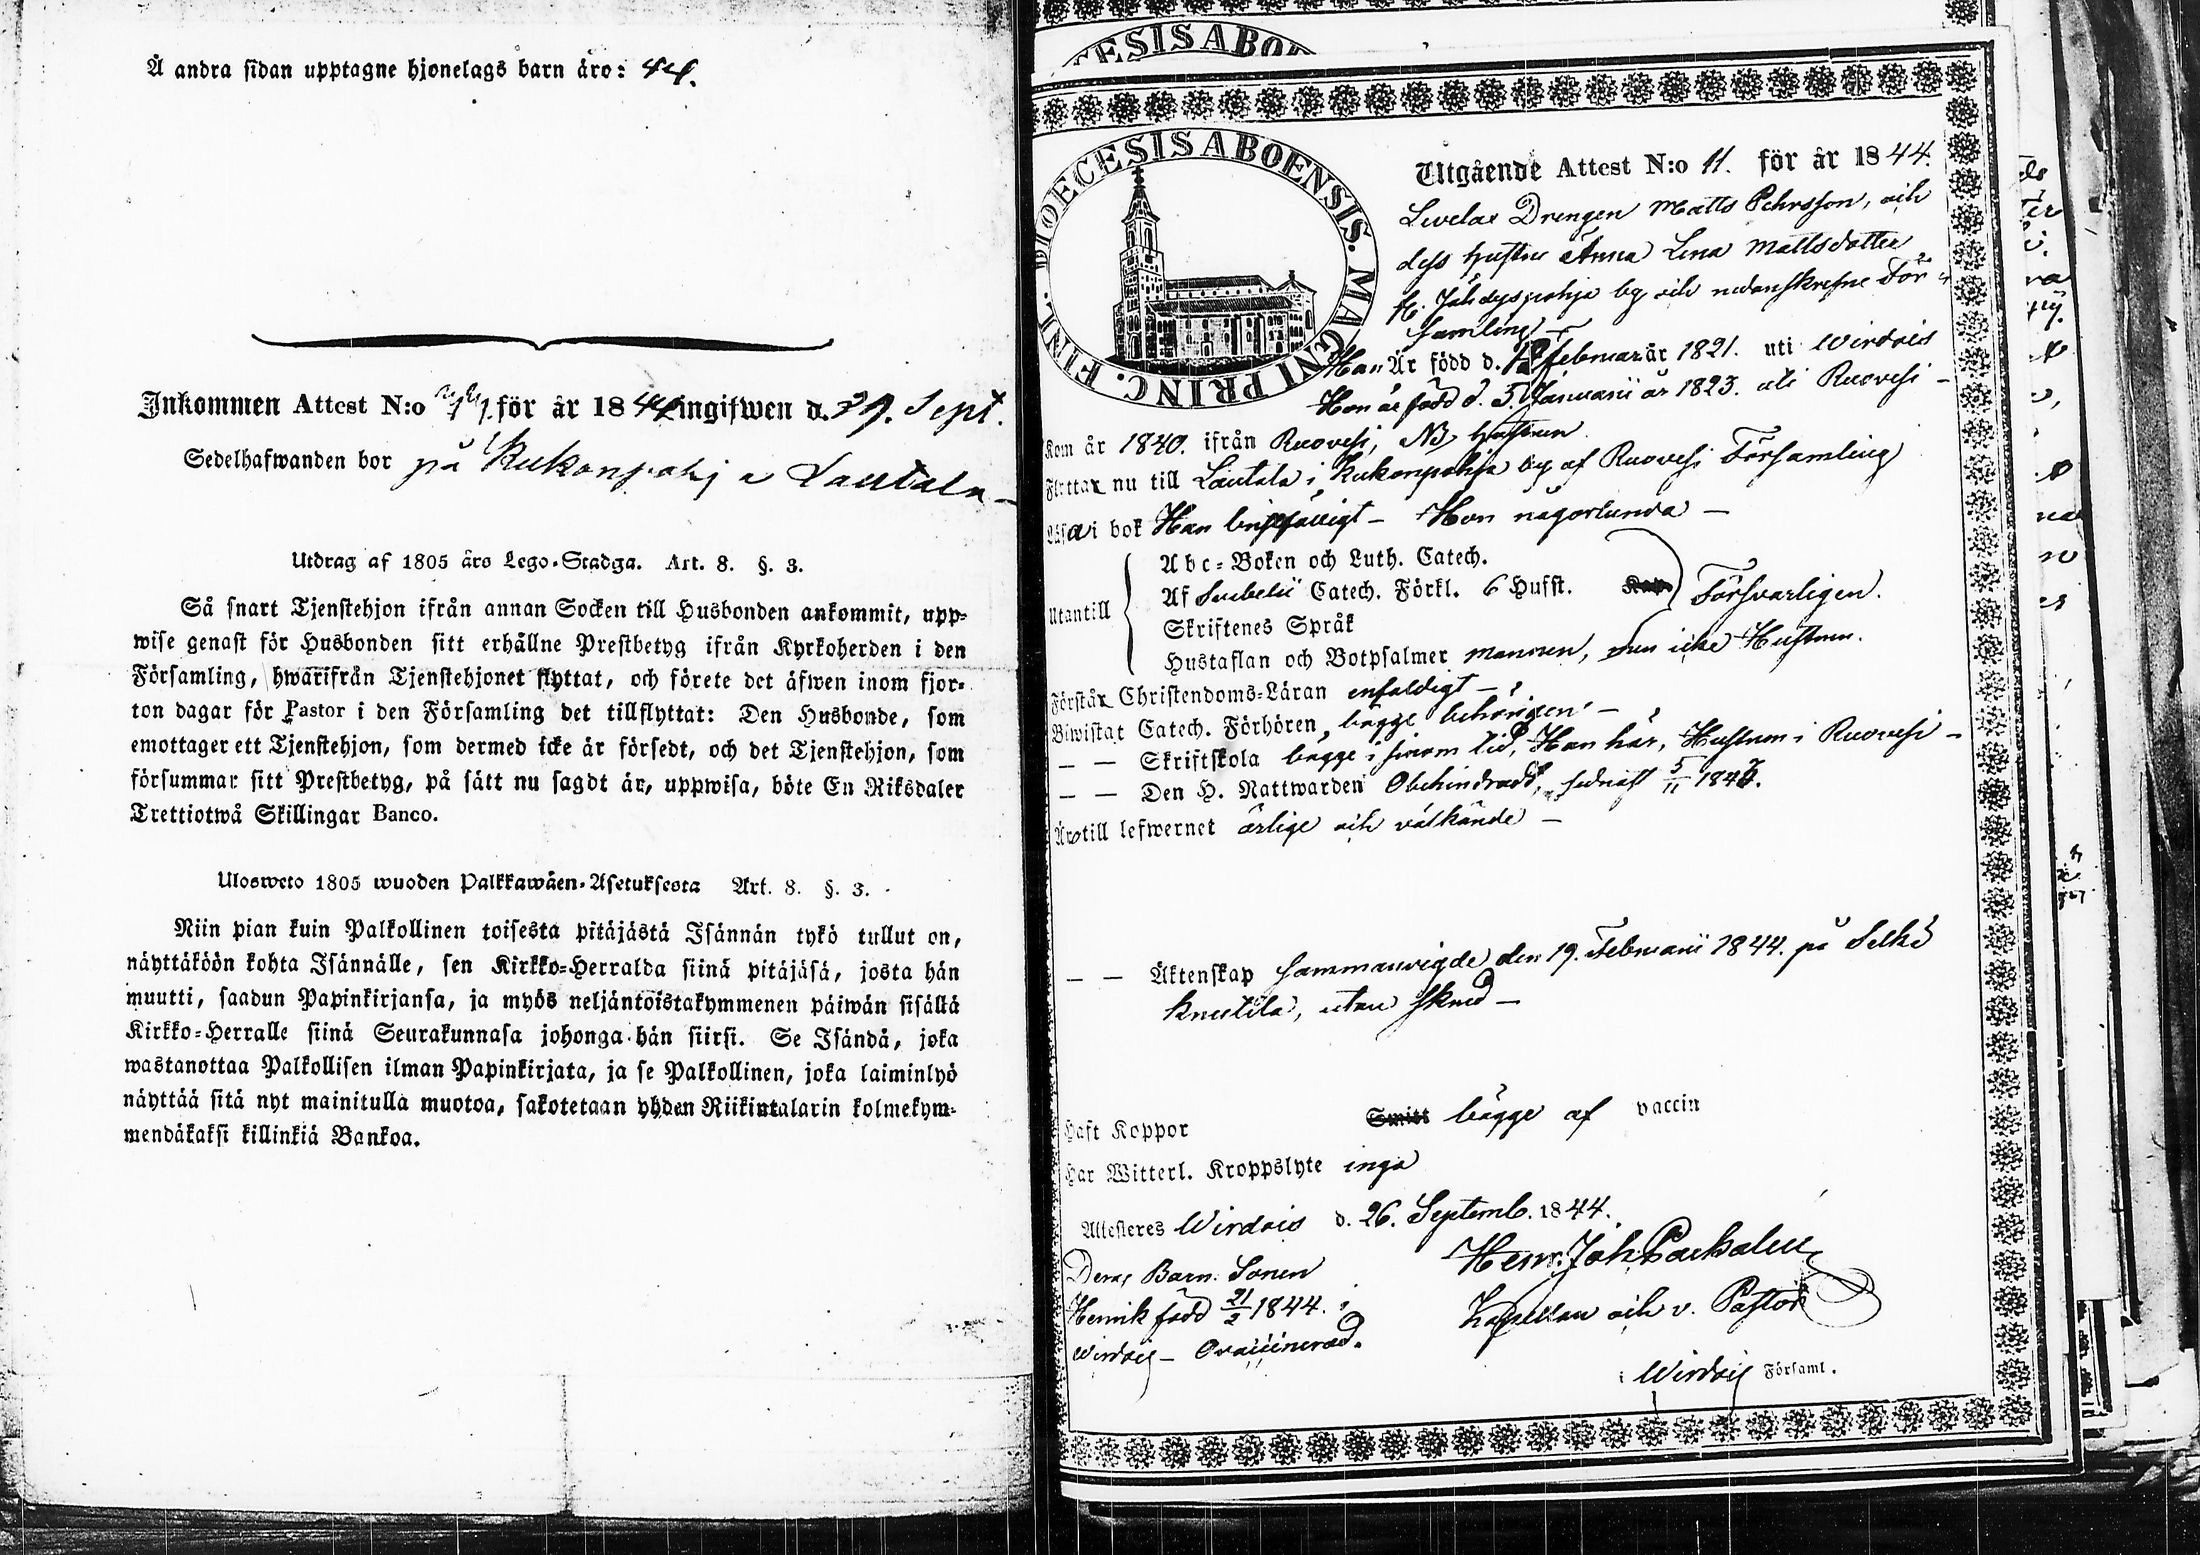 Å andra sidan upptagne hjonelags barn äro: 44.
Inkommen Attest N:o för år 1844 ingifwen d. 29. Sept.
Sedelhafwanden bor på Kukonpohja Lautala
Utdrag af 1805 års Lego-Stadga. Art. 8. §. 3.
Så snart Tjenstehjon ifrån annan Socken till Husbonden ankommit, upp-
wise genast för Husbonden sitt erhållne Prestbetyg ifrån Kyrkoherden i den
Församling, hwarifrån Tjenstehjonet flyttat, och förete det äfwen inom fjor-
ton dagar för Pastor i den Församling det tillflyttat: Den Husbonde, som
emottager ett Tjenstehjon, som dermed icke är försedt, och det Tjenstehjon, som
försummar sitt Prestbetyg, på sätt nu sagdt är, uppwisa, böte En Riksdaler
Trettiotwå Skillingar Banco.
Ulosweto 1805 wuoden Palkkawäen-Asetuksesta Art. 8. §. 3.
Niin pian kuin Palkollinen toisesta pitäjästä Isännän tykö tullut on,
näyttäköön kohta Isännälle, sen Kirkko-Herralda siinä pitäjäsä, josta hän
muutti, saadun Papinkirjansa, ja myös neljäntoistakymmenen päiwän sisällä
Kirkko-Herralle siinä Seurakunnasa johonga hän siirsi. Se Isändä, joka
wastanottaa Palkollisen ilman Papinkirjata, ja se Palkollinen, joka laiminlyö
näyttää sitä nyt mainitulla muotoa, sakotetaan yhden Riikintalarin kolmekym-
mendäkaksi killinkiä Bankoa.
ESIS ABO
DIOECESIS ABOENSIS. MAGNI PRINC. FINL.
Utgående Attest N:o 11. för år 1844.
Drengen Matts Pehrsson, och
dess hustru Anna Lena Mattsdotter
fr. Jähdyspohja by och nedanskrefne För-
samling
Han Är född d. februar år 1821. uti Wirdois
Hon är född d. 5. Januarii år 1823. uti Ruovesi
Kom år 1840. ifrån Ruovesi, NB hustrun
Flyttar nu till Lautala i Kukonpohja by af Ruovesi Församling
Läsa i bok Han Hon någorlunda
Utantill
Abc-Boken och Luth. Catech.
Af Svebelii Catech. Förkl. 6 Husst. Försvarligen.
Skriftenes Språk
Hustaflan och Botpsalmer mannen, men icke Hustrun.
Förstår Christendoms-Läran enfaldigt
Biwistat Catech. Förhören bägge behörigen
— — Skriftskola bägge i sinom tid, Han här, Hustrun i Ruovesi
— — Den H. Nattwarden Obehindrade, sednast 5/11 184
Äro till lefwernet ärlige och välkände
— — Äktenskap sammanvigde den 19. Februarii 1844. på Selkä
Knutila, utan skuld
Haft Koppor bägge af vaccin
Har Witterl. Kroppslyte inga
Attesteres Wirdois d. 26. Septemb. 1844.
Deras Barn: Sonen
Henrik född 21/2 1844. i
Wirdois — Ovaccinerad.
Henr. Joh.
Kapellan och v. Pastor
i Wirdois Församl.